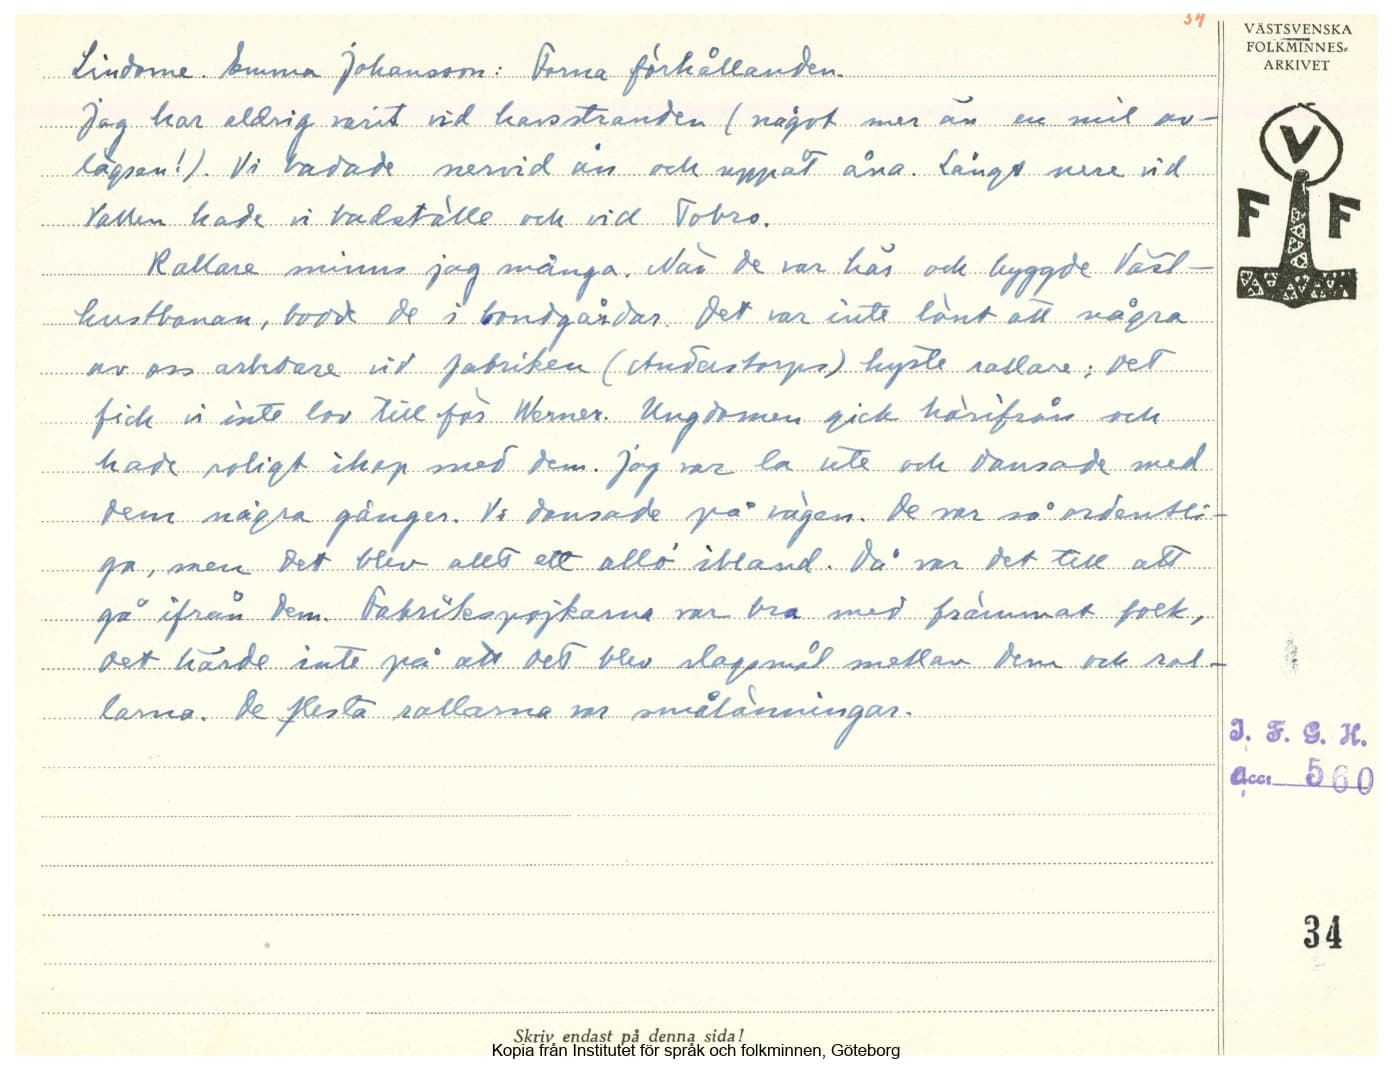 34
VÄSTSVENSKA
FOLKMINNES-
ARKIVET
V
F F
Lindome. Emma Johansson: Forna förhållanden.
Jag har aldrig varit vid havsstranden (något mer än en mil av-
lägsen!). Vi badade nervid ån och uppåt åna. Långt nere vid
Vallen hade vi badställe och vid Tobro.
Rallare minns jag många. När de var här och byggde Väst-
kustbanan, bodde de i bondgårdar. Det var inte lönt att några
av oss arbetare vid fabriken (Anderstorps) hyste rallare; det
fick vi inte lov till för Werner. Ungdomen gick härifrån och
hade roligt ihop med dem. Jag var la ute och dansade med
dem några gånger. Vi dansade på vägen. De var så ordentli-
ga, men det blev allt ett allö ibland. Då var det till att
gå ifrån dem. Fabrikspojkarna var bra med främmat folk,
det hände inte på att det blev slagsmål mellan dem och ral-
larna. De flesta rallarna var smålänningar.
I. F. G. H.
Acc. 560
34
Skriv endast på denna sida!
Kopia från Institutet för språk och folkminnen, Göteborg